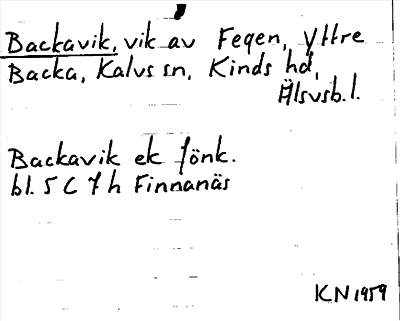 Backavik, vik av Fegen, Yttre
Backa, Kalvs sn, Kinds hd,
Älsvsb.l.
Backavik ek fönk.
bl. 5 C 7 h Finnanäs
KN 1959